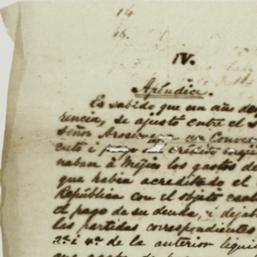 14
15.
IV.
Apéndice.
Es sabido que un año de
rencia, se ajustó entre el S
Señor Aros
cuto i
naban á Méjico los gastos de
que habia acreditado el
República con el objeto
el pago de su deuda, i dejab
las partidas correspondientes
2ª i 4ª de la anterior liqui